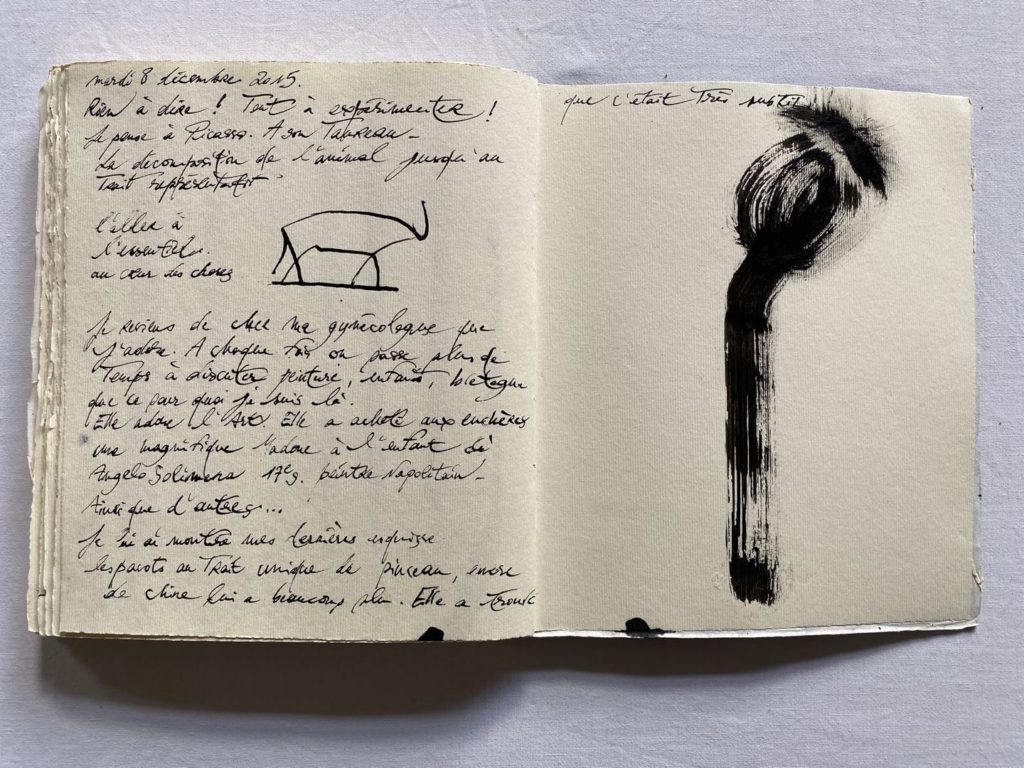 mardi 8 décembre 2015.
Rien à dire ! Tout à expérimenter !
Je pense à Picasso. A son Taureau –
La décomposition de l'animal jusqu'au
Trait représentatif
l'aller à
l'essentiel.
au cœur des choses
Je reviens de chez ma gynécologue que
j'adore. A chaque fois on passe plus de
Temps à discuter peinture, enfants, bretagne
que ce pour quoi je suis là.
Elle adore l'Art. Elle a acheté aux enchères
une magnifique Madone à l'enfant de
Angelo Solimena 17e s. peintre Napolitain –
Ainsi que d'autres...
Je lui ai montré mes dernières esquisse
les pavots au Trait unique de pinceau, encre
de chine lui a beaucoup plu. Elle a Trouvé
que c'était Très